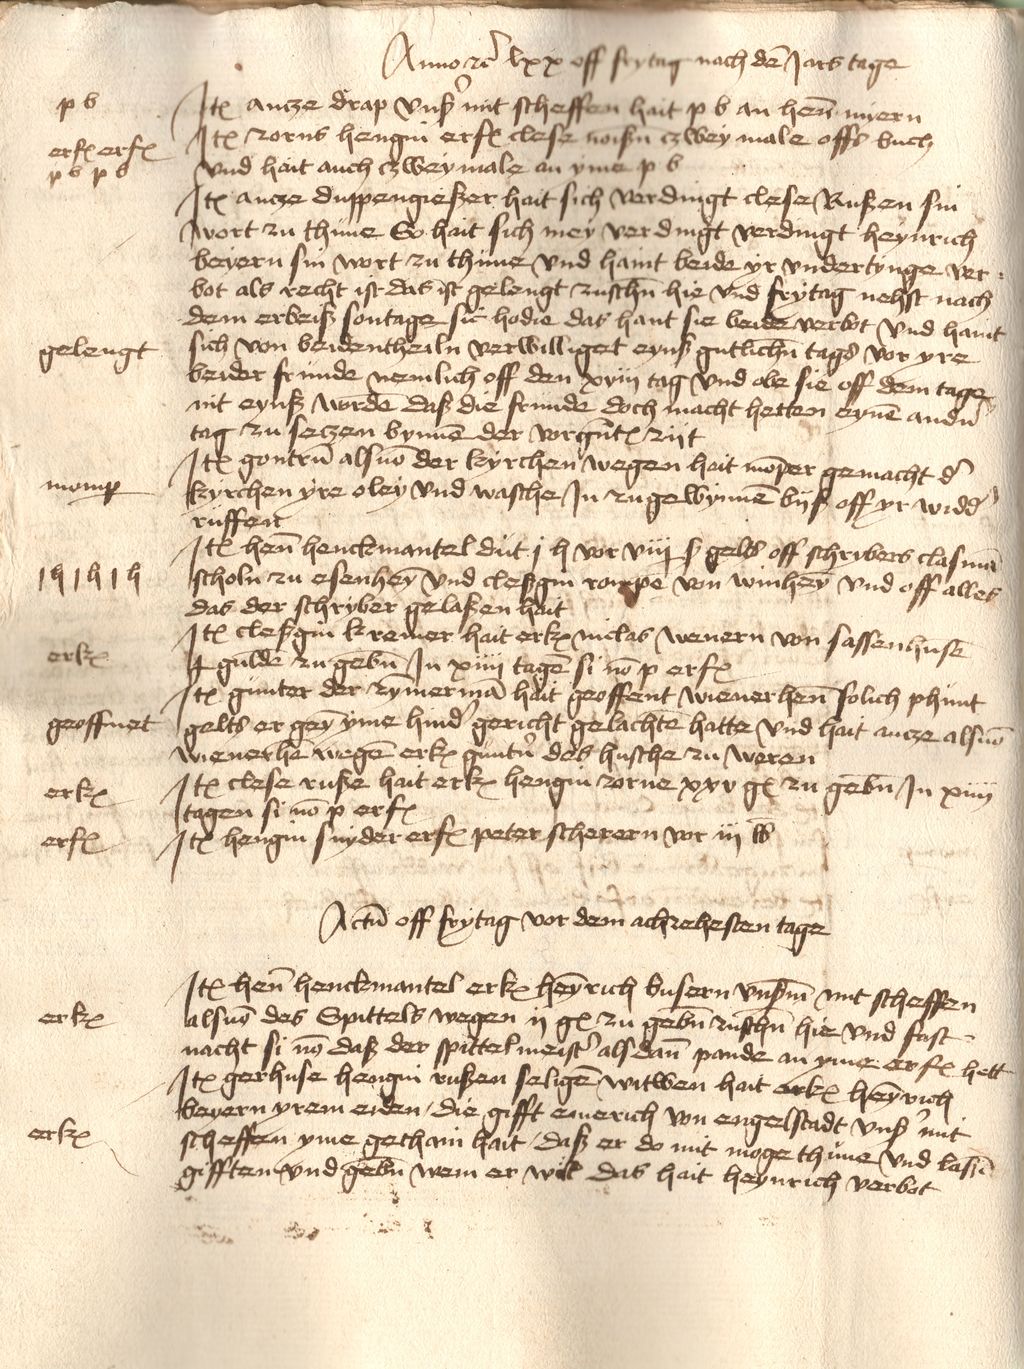 Anno rc lxx off frytag nach dem Jars tage
p b
Itē ancze drap vnß mit scheffen hait p b an henn
Itē zorns hengin erfē clese czwey male offs buch
erfē erfē
vnd hait auch czwey male an yme p b
p b p b
Itē ancze duppengießer hait sich verdingt clese Rußen sin
wort zu thune So hait sich mey verdingt verdingt heynrich
beyern sin wort zu thune vnd haint beide yr vndertynge ver-
bot als recht ist das ist gelengt zuschn hie vnd frytag nehst nach
dem erbeiß sontage sic hodie das hant sie beide verbot vnd haint
gelengt
sich von beidentheiln verwilliget eynß gutlichn tags vor yre
beider frunde nemlich off den xviij tag vnd obe sie off dem tage
nit eynß worden daß die frunde doch macht hetten eynē andn
tag zu seczen bynnē der vorgntē zijt
Itē gontrum alsuō der kyrchen wegen hait momper gemacht d
momp
kyrchen yre oley vnd wasche In zugewynnē biß off yr widd
ruffen
Itē hen henckmantel dut j h vor viij ß gelts off schrybers clasman
1 h 1 h 1 h
scholn zu esenheȳ vnd cleßgin rampe von winheȳ vnd off alles
das der schryber gelaßen hait
Itē cleßgin kremer hait erkē niclas wenern von sassenhusē
erkē
gulde zu gebn In xiiij tagē si nō p erfē
Itē gunter der zȳmermā hait geoffent wienerhen solich phunt
geoffnet
gelts er geȳ yme hind gericht gelachte hatte vnd hait ancze alsuō
wienerhē wegē erkē guntn des husche zu weren
Itē clese ruße hait erkē hengin zorne xxv gē zu gebn In xiiij
erkē
tagen si nō p erfē
Itē hengin snyder erfē peter scherern vor iij lb
erfē
Actū off frytag vor dem achzehesten tage
Itē hen henckmantel erkē heȳrich busern vnßm mit scheffen
erkē
alsuō des Spittels wegen ij gē zu gebn zuschn hie vnd fast-
nacht si nō daß der spittelmeist alsdan pande an yme erfē hett
Itē gerhuse hengin rußen seligē witwen hait erkē heȳrich
beyern yrem eiden die gifft emerich von engelstadt vnß mit
erkē
scheffen yme gethain hait daß er do mit moge thune vnd laßē
gifften vnd gebn wem er wil das hait heynrich verbot